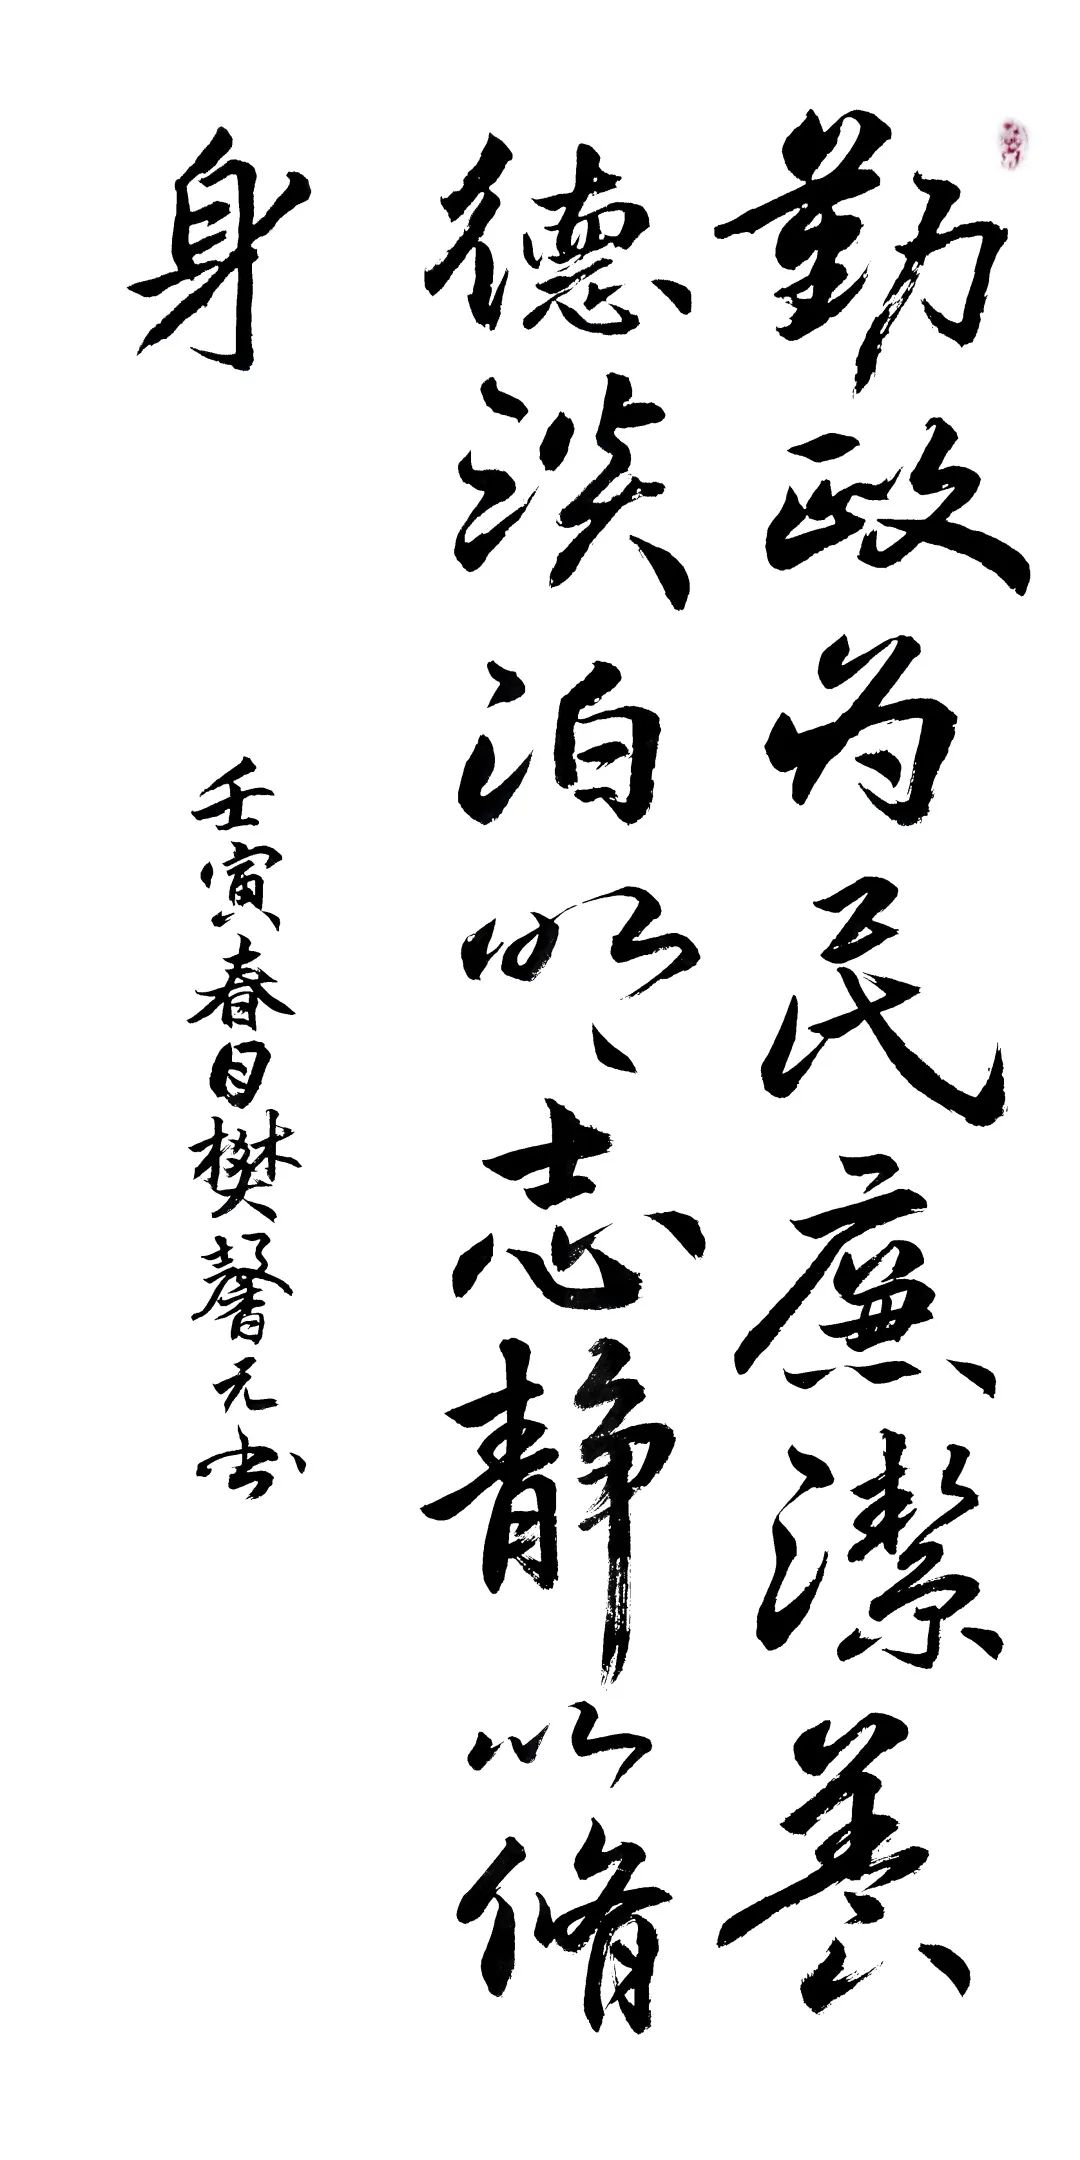 勤政为民廉潔養
德淡泊明志静以脩
身
壬寅春日樊馨元书